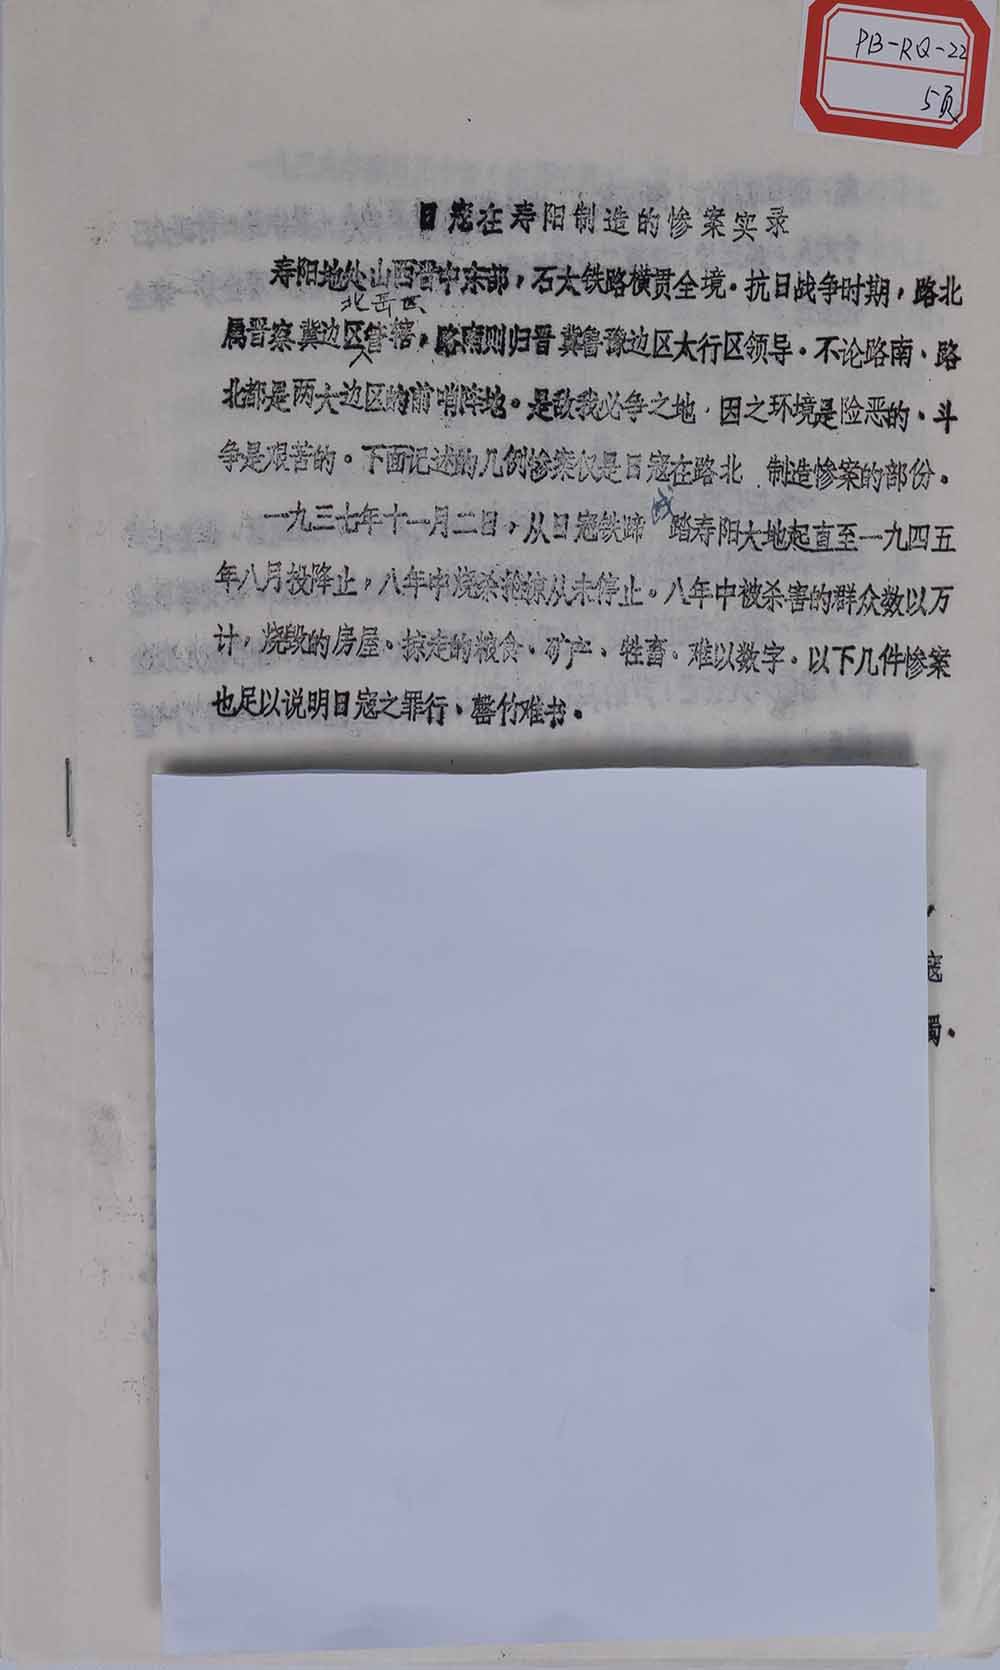 PB-RQ-22
5页
日寇在寿阳制造的惨案实录
寿阳地处山西晋中东部，石太铁路横贯全境。抗日战争时期，路北
北岳区
属晋察冀边区管辖，路南则归晋冀鲁豫边区太行区领导。不论路南、路
北都是两大边区的前哨阵地。是敌我必争之地．因之环境是险恶的、斗
争是艰苦的。下面记述的几例惨案仅是日寇在路北 制造惨案的部份。
一九三七年十一月二日，从日寇铁蹄 践踏寿阳大地起直至一九四五
年八月投降止，八年中烧杀抢掠从未停止。八年中被杀害的群众数以万
计，烧毁的房屋、掠走的粮食、矿产、牲畜、难以数字。以下几件惨案
也足以说明日寇之罪行、罄竹难书。
寇